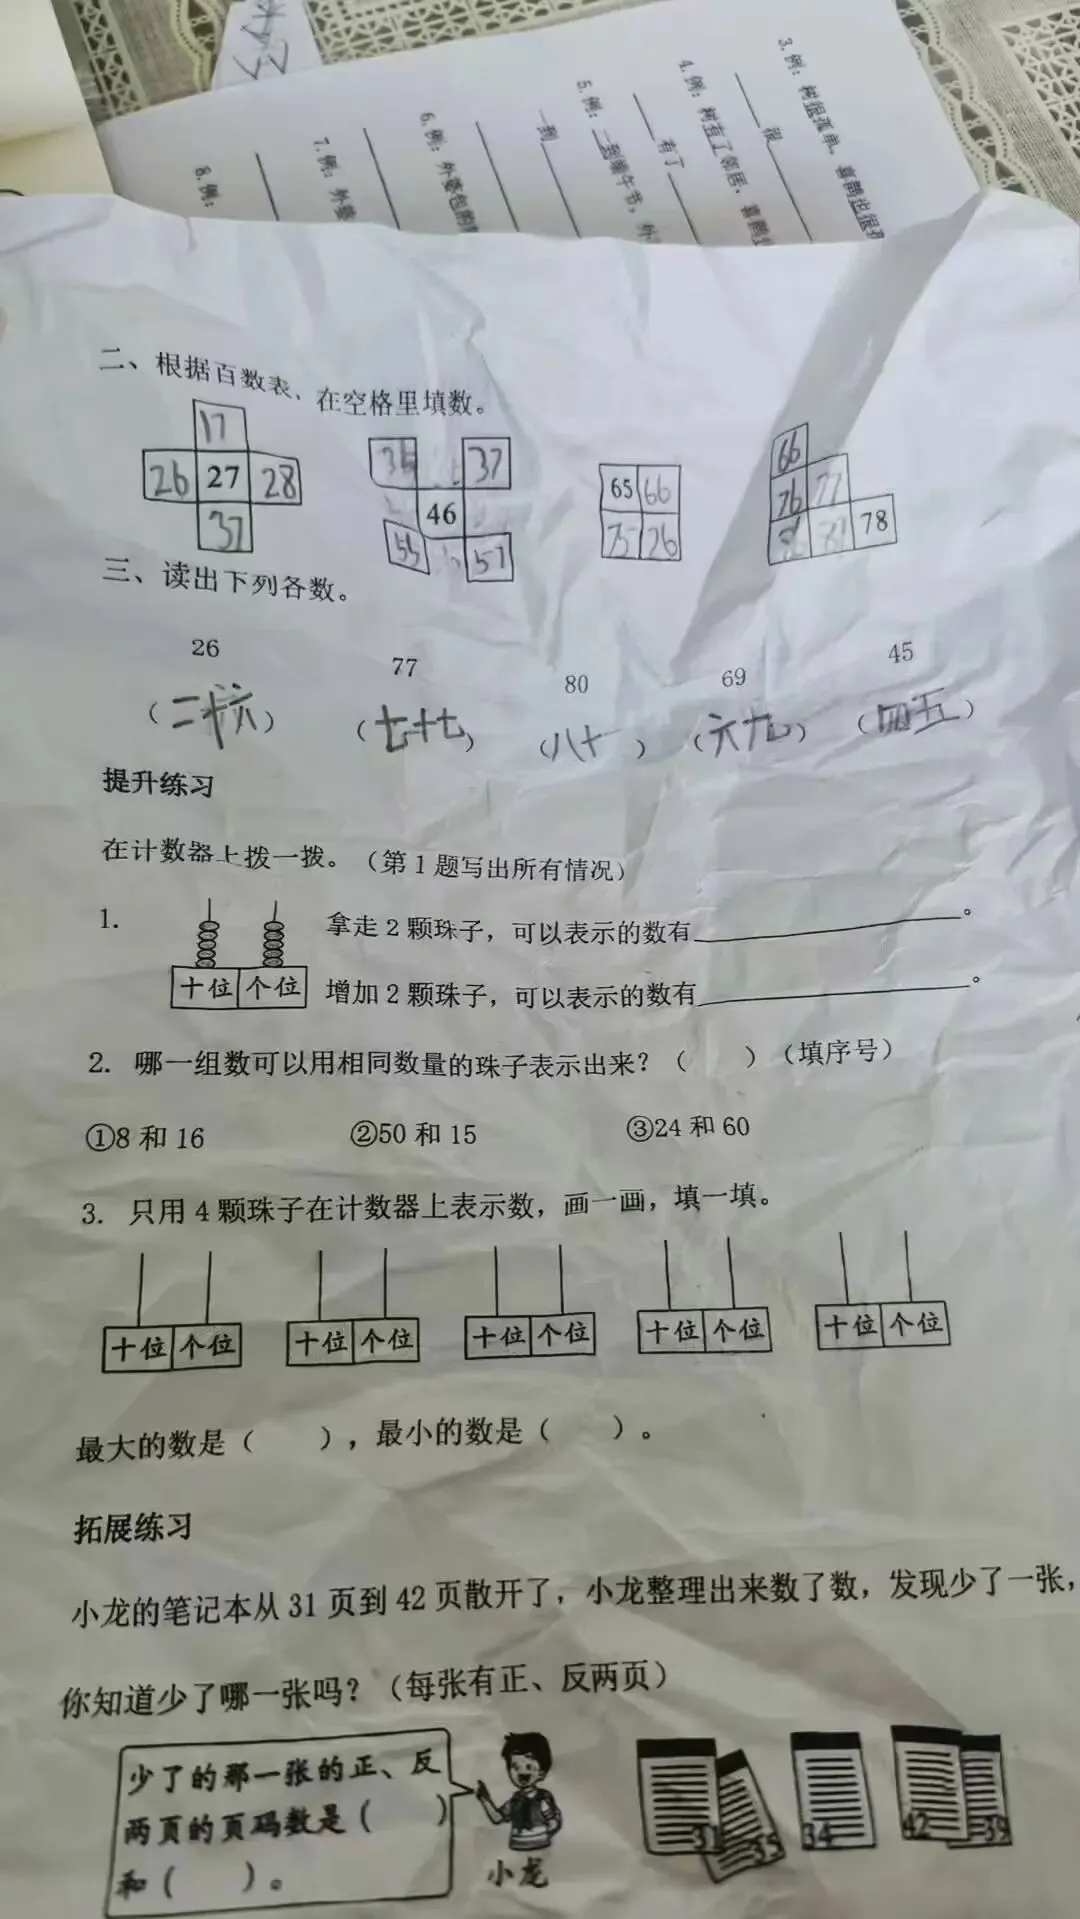 3.例：树很孤单，喜鹊也很孤
很
4.例：树有了邻居，喜鹊
有了
5.例：一到端午节，外
一到
6.例：外婆包的
7.例：外婆
8.例：
二、根据百数表，在空格里填数。
17
26 27 28
37
35 37
46
55 57
65 66
75 26
66
76 77
78
三、读出下列各数。
26 77 80 69 45
（二十六） （七十七） （八十 ） （六十九） （四五）
提升练习
在计数器上拨一拨。（第1题写出所有情况）
1. 拿走2颗珠子，可以表示的数有。
十位 个位 增加2颗珠子，可以表示的数有。
2. 哪一组数可以用相同数量的珠子表示出来？（ ）（填序号）
①8和16 ②50和15 ③24和60
3. 只用4颗珠子在计数器上表示数，画一画，填一填。
十位 个位 十位 个位 十位 个位 十位 个位 十位 个位
最大的数是（ ），最小的数是（ ）。
拓展练习
小龙的笔记本从31页到42页散开了，小龙整理出来数了数，发现少了一张，
你知道少了哪一张吗？（每张有正、反两页）
少了的那一张的正、反
两页的页码数是（ ）
和（ ）。
小龙
31 35 34 42 39